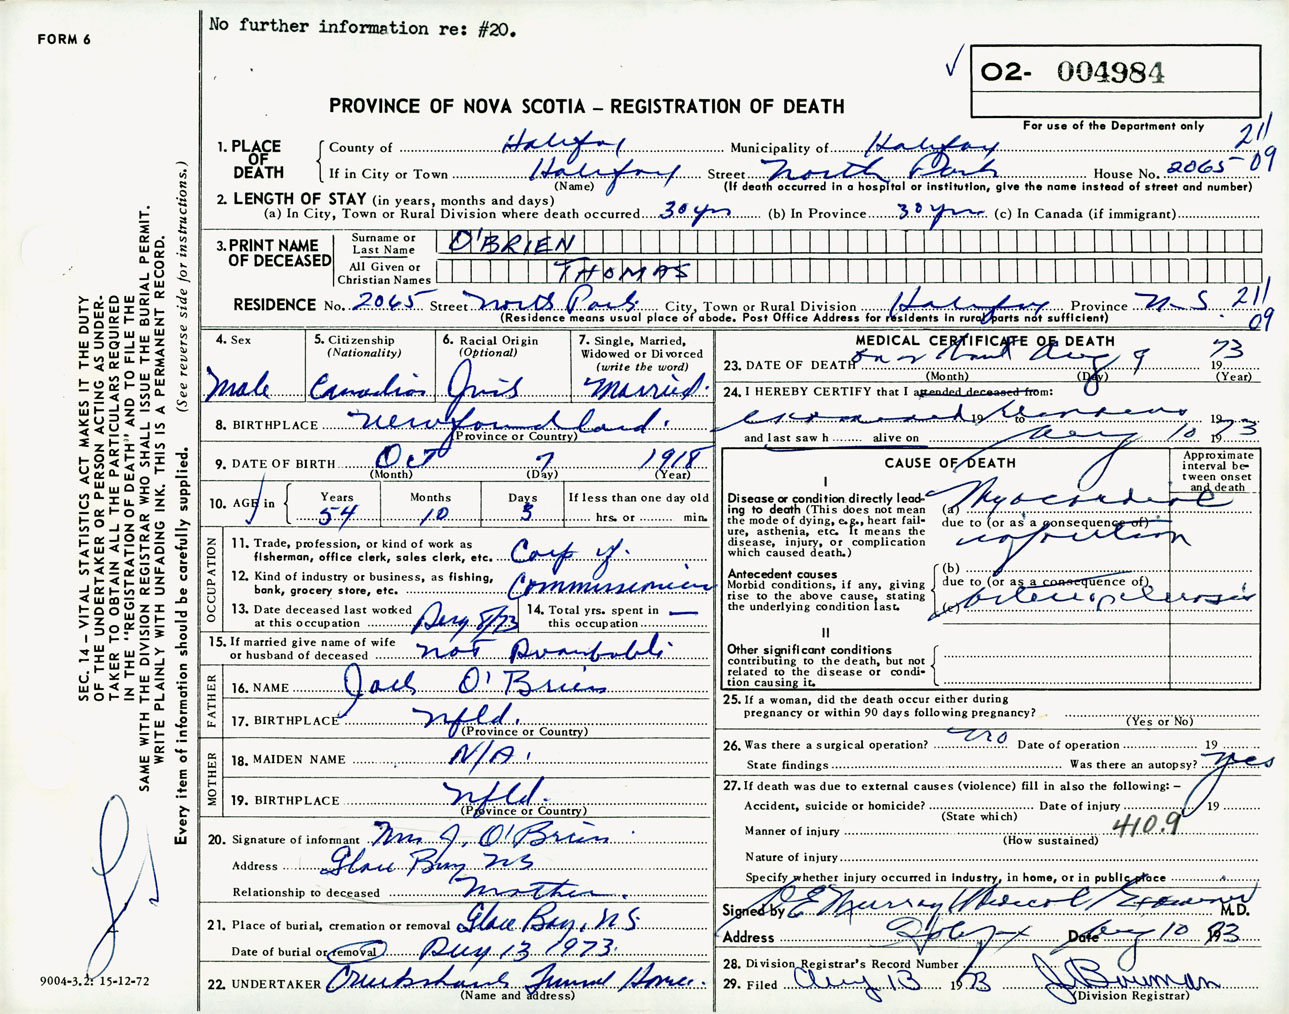 No further information re: #20.
FORM 6
O2- 004984
For use of the Department only
PROVINCE OF NOVA SCOTIA – REGISTRATION OF DEATH
211
09
1. PLACE OF DEATH
County of Halifax Municipality of Halifax
If in City or Town Halifax Street North Park House No. 2065
(Name) (If death occurred in a hospital or institution, give the name instead of street and number)
2. LENGTH OF STAY (in years, months and days)
(a) In City, Town or Rural Division where death occurred 30 yrs (b) In Province 30 yrs (c) In Canada (if immigrant)
3. PRINT NAME OF DECEASED
Surname or Last Name O'BRIEN
All Given or Christian Names THOMAS
RESIDENCE No. 2065 Street North Park City, Town or Rural Division Halifax Province N.S. 211
(Residence means usual place of abode. Post Office Address for residents in rural parts not sufficient) 09
4. Sex
Male
5. Citizenship (Nationality)
Canadian
6. Racial Origin (Optional)
Irish
7. Single, Married, Widowed or Divorced (write the word)
Married.
8. BIRTHPLACE Newfoundland.
(Province or Country)
9. DATE OF BIRTH Oct 7 1918
(Month) (Day) (Year)
10. AGE in
Years Months Days If less than one day old
54 10 3 hrs. or min.
OCCUPATION
11. Trade, profession, or kind of work as fisherman, office clerk, sales clerk, etc. Corp of.
12. Kind of industry or business, as fishing, bank, grocery store, etc. Commissionaires
13. Date deceased last worked at this occupation Aug 8/73
14. Total yrs. spent in this occupation —
15. If married give name of wife or husband of deceased not Available
FATHER
16. NAME Jack O'Brien
17. BIRTHPLACE Nfld.
(Province or Country)
MOTHER
18. MAIDEN NAME N/A.
19. BIRTHPLACE Nfld.
(Province or Country)
20. Signature of informant Mrs J. O'Brien
Address Glace Bay NS
Relationship to deceased Mother.
21. Place of burial, cremation or removal Glace Bay, N.S.
Date of burial or removal Aug 13 1973.
22. UNDERTAKER Cruikshanks Funeral Home.
(Name and address)
MEDICAL CERTIFICATE OF DEATH
23. DATE OF DEATH on or about Aug 9 1973
(Month) (Day) (Year)
24. I HEREBY CERTIFY that I attended deceased from:
examined 19 to 19
and last saw h alive on Aug 10 1973
CAUSE OF DEATH
Approximate interval between onset and death
I
Disease or condition directly leading to death (This does not mean the mode of dying, e.g., heart failure, asthenia, etc. It means the disease, injury, or complication which caused death.)
(a) Myocardial
due to (or as a consequence of)
infarction
Antecedent causes
Morbid conditions, if any, giving rise to the above cause, stating the underlying condition last.
(b)
due to (or as a consequence of)
(c) Arteriosclerosis
II
Other significant conditions contributing to the death, but not related to the disease or condition causing it.
25. If a woman, did the death occur either during pregnancy or within 90 days following pregnancy?
(Yes or No)
26. Was there a surgical operation? no Date of operation 19
State findings Was there an autopsy? yes
27. If death was due to external causes (violence) fill in also the following: –
Accident, suicide or homicide? Date of injury 19
(State which)
Manner of injury 410.9
(How sustained)
Nature of injury
Specify whether injury occurred in industry, in home, or in public place
Signed by R E Murray Medical Examiner M.D.
Address Halifax Date Aug 10 1973
28. Division Registrar's Record Number
29. Filed Aug 13 1973 J. Bowman
(Division Registrar)
SEC. 14 – VITAL STATISTICS ACT MAKES IT THE DUTY
OF THE UNDERTAKER OR PERSON ACTING AS UNDER-
TAKER TO OBTAIN ALL THE PARTICULARS REQUIRED
IN THE "REGISTRATION OF DEATH" AND TO FILE THE
SAME WITH THE DIVISION REGISTRAR WHO SHALL ISSUE THE BURIAL PERMIT.
WRITE PLAINLY WITH UNFADING INK. THIS IS A PERMANENT RECORD.
Every item of information should be carefully supplied. (See reverse side for instructions.)
9004-3.2: 15-12-72